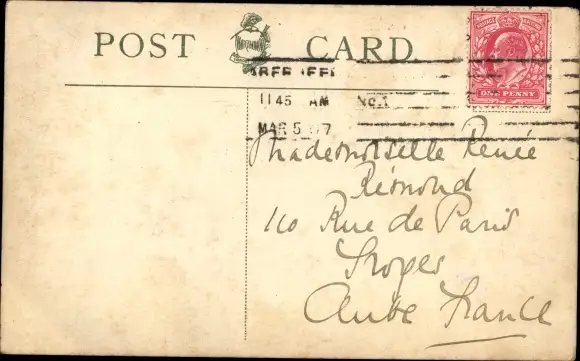 POST CARD
11 45 AM No.1
MAR 5 07
POSTAGE REVENUE
ONE PENNY
Mademoiselle Renée
Rémond
110 Rue de Paris
Troyes
Aube France